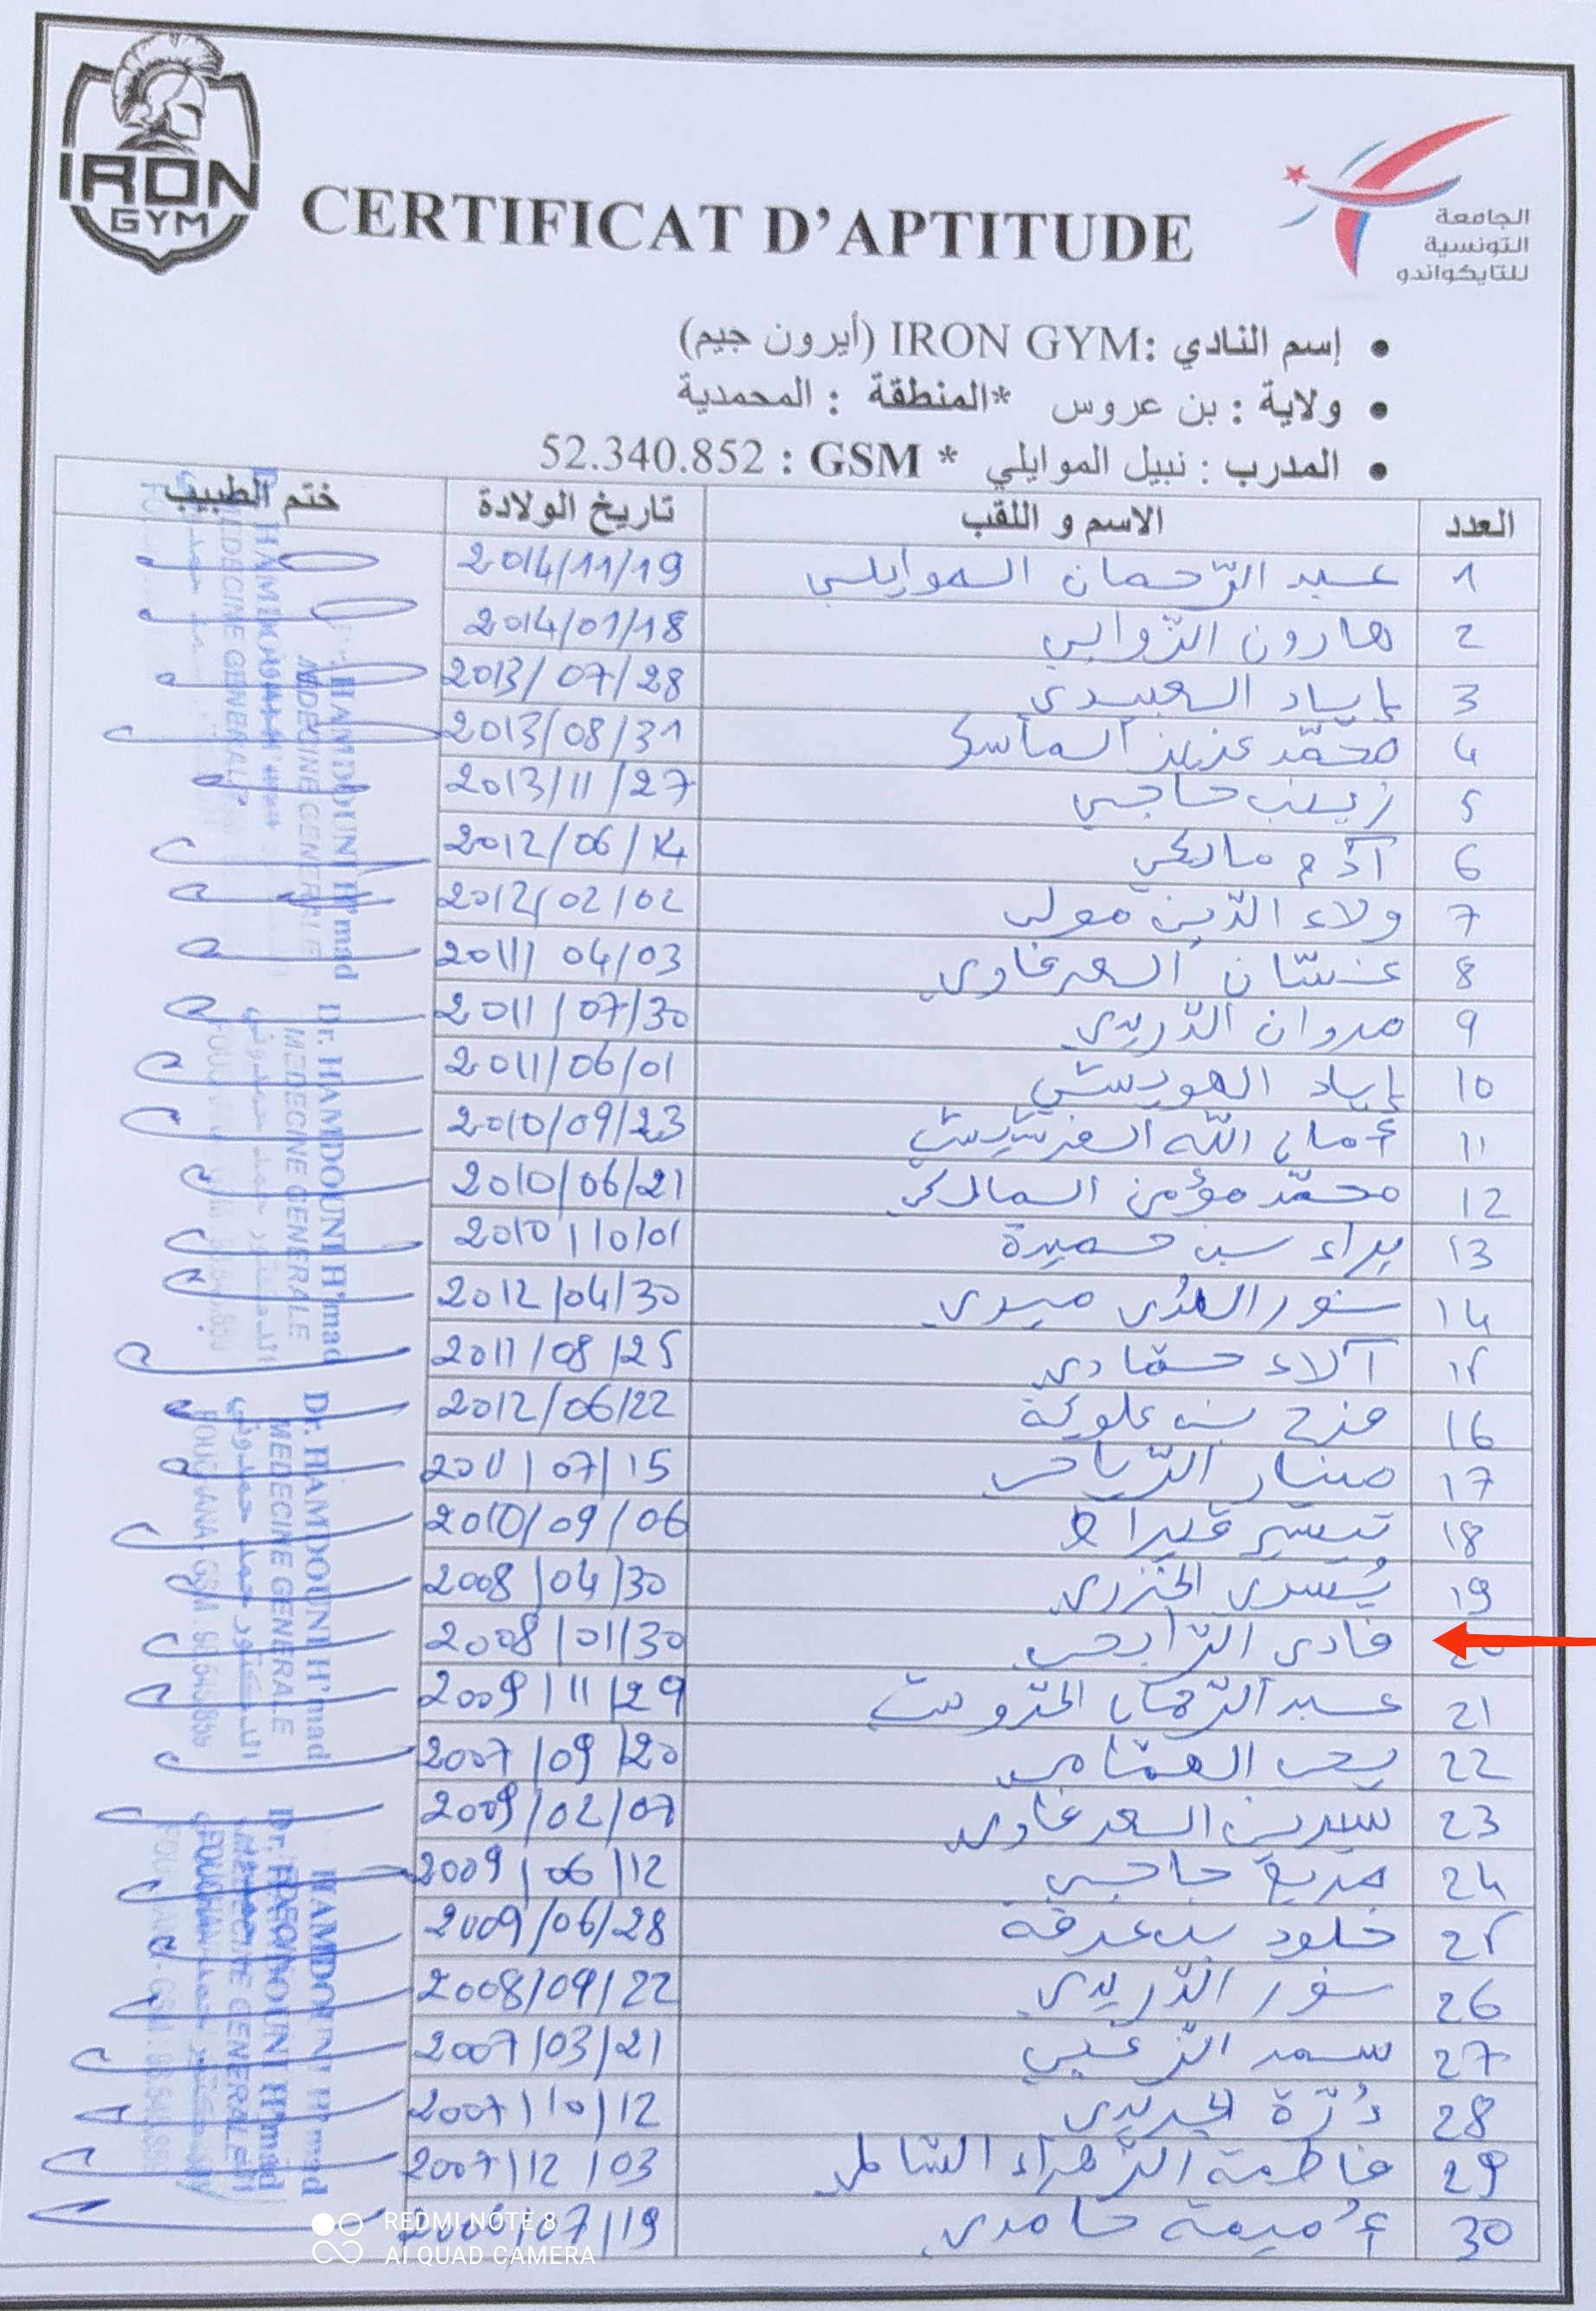 IRON
GYM
CERTIFICAT D'APTITUDE
الجامعة
التونسية
للتايكواندو
• إسم النادي :IRON GYM (أيرون جيم)
• ولاية : بن عروس *المنطقة : المحمدية
• المدرب : نبيل الموايلي * GSM : 52.340.852
العدد الاسم و اللقب تاريخ الولادة ختم الطبيب
1 عبد الرّحمان الموايلي 2014/11/19
2 هارون الزّوابي 2014/01/18
3 إياد العبيدي 2013/07/28
4 محمّد عزيز الماسي 2013/08/31
5 زينب حاجي 2013/11/27
6 آدم مالكي 2012/06/14
7 ولاء الدّين مولي 2012/02/02
8 غسّان السعرغاوي 2011/04/03
9 مروان الدّريدي 2011/07/30
10 إياد الهويشي 2011/06/01
11 أمان الله الفرشيشي 2010/09/23
12 محمّد مؤمن المالكي 2010/06/21
13 براء بن حميدة 2010/10/01
14 نور الهدى ميري 2012/04/30
15 آلاء حمّادي 2011/08/25
16 فرح بن علوية 2012/06/22
17 منار الرّياحي 2011/07/15
18 تيسير قيراط 2010/09/06
19 يُسرى الخزري 2008/04/30
20 فادي الرّابحي 2008/01/30
21 عبد الرّحمان 2009/11/29
22 يحي العتّابي 2007/09/20
23 سيرين السعرغاوي 2009/02/07
24 مريم حاجي 2009/06/12
25 خلود بن عرفة 2009/06/28
26 نور الدّريدي 2008/09/22
27 سمر الزّغبي 2007/03/21
28 دُرّة الجريدي 2007/10/12
29 فاطمة الزّهراء الشاملي 2007/12/03
30 أُميمة حامدي 07/19
Dr. HAMDOUNI H'mad
MEDECINE GENERALE
الدكتور حمد حمدوني
REDMI NOTE 8
AI QUAD CAMERA